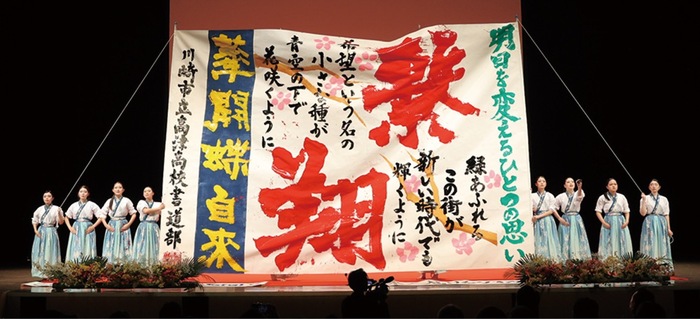 明日を変えるひとつの思い
緑あふれる
この街が
新しい時代でも
輝くように
翔
希望という名の
小さな種が
青空の下で
花咲くように
華開蝶自来
川崎市立高津高校書道部